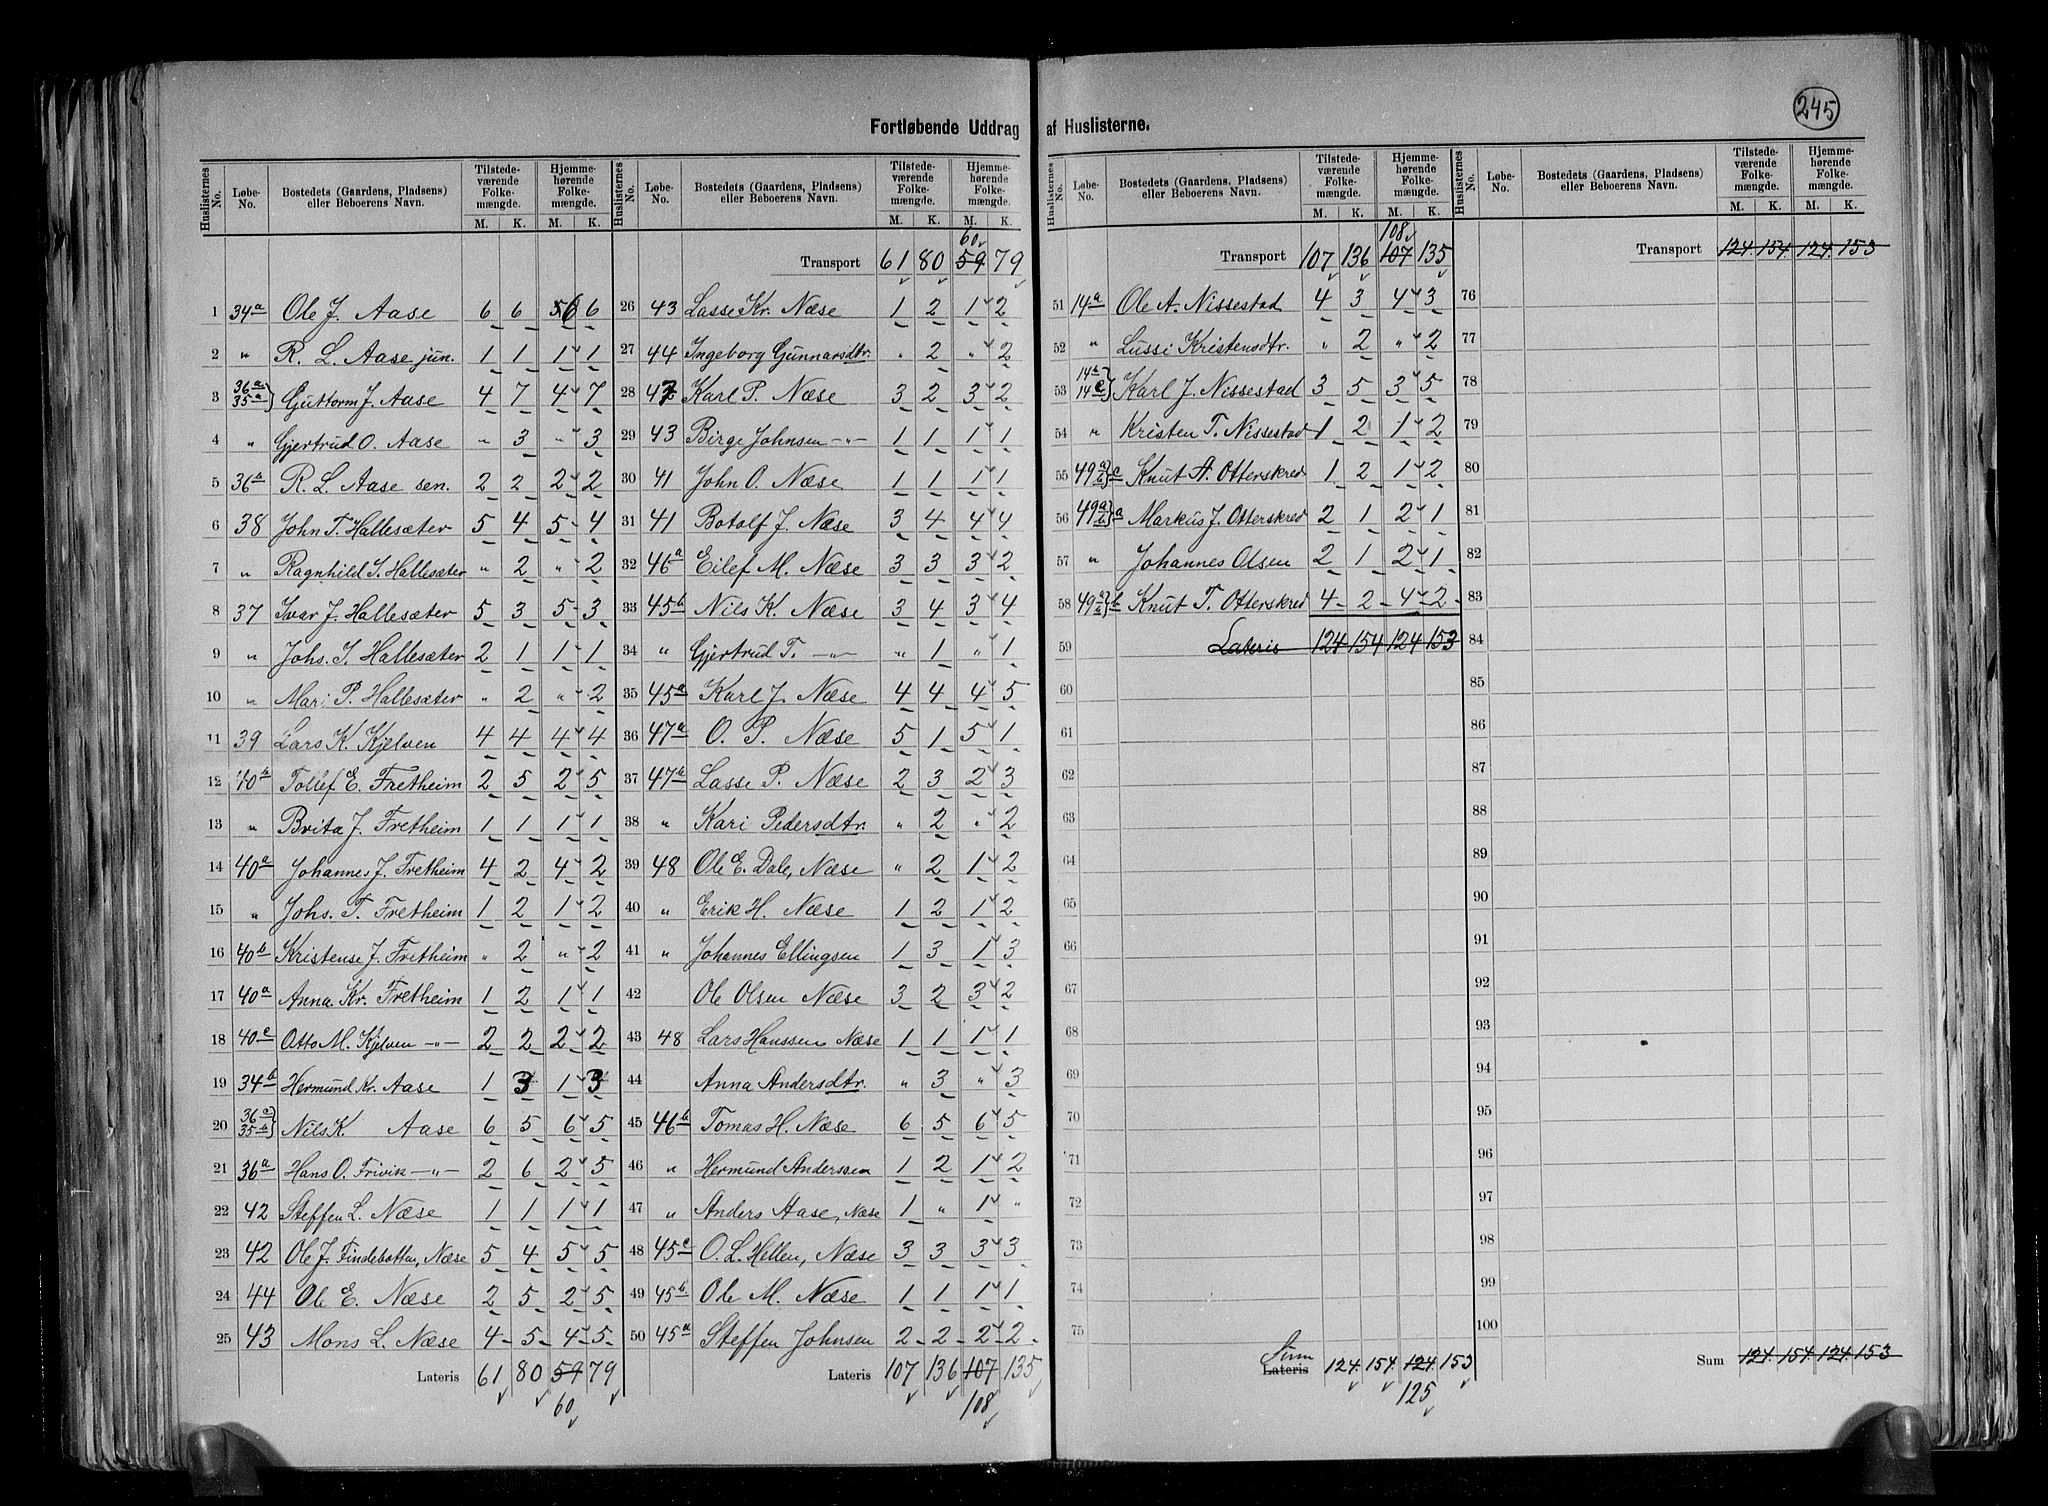 245
Fortløbende Uddrag af Huslisterne.
Huslisternes No. Løbe-No. Bostedets (Gaardens, Pladsens) eller Beboerens Navn. Tilstedeværende Folkemængde. M. K. Hjemmehørende Folkemængde. M. K.
1 34a Ole J. Aase 6 6 6 6
2 " R. L. Aase jun. 1 1 1 1
3 36a 35a} Guttorm J. Aase 4 7 4 7
4 " Gjertrud O. Aase " 3 " 3
5 36b R. L. Aase sen. 2 2 2 2
6 38 John T. Hallesæter 5 4 5 4
7 " Ragnhild S. Hallesæter " 2 " 2
8 37 Ivar J. Hallesæter 5 3 5 3
9 " Johs. S. Hallesæter 2 1 1 1
10 " Mari P. Hallesæter " 2 " 2
11 39 Lars K. Kjelven 4 4 4 4
12 40b Tollef E. Fretheim 2 5 2 5
13 " Brita J. Fretheim 1 1 1 1
14 40a Johannes J. Fretheim 4 2 4 2
15 " Johs. T. Fretheim 1 2 1 2
16 40b Kristense J. Fretheim " 2 " 2
17 40a Anna Kr. Fretheim 1 2 1 1
18 40c Otto M. Kjelven -"- 2 2 2 2
19 34b Hermund Kr. Aase 1 3 1 3
20 36c 35b} Nils K. Aase 6 5 6 5
21 36a Hans O. Frivik -"- 2 6 2 5
22 42 Steffen L. Næse 1 1 1 1
23 42 Ole J. Findebotten, Næse 5 4 5 5
24 44 Ole E. Næse 2 5 2 5
25 43 Mons L. Næse 4 5 4 5
Lateris 61 80 59 79
60
Huslisternes No. Løbe-No. Bostedets (Gaardens, Pladsens) eller Beboerens Navn. Tilstedeværende Folkemængde. M. K. Hjemmehørende Folkemængde. M. K.
60
Transport 61 80 59 79
26 43 Lasse Kr. Næse 1 2 1 2
27 44 Ingeborg Gunnarsdtr. " 2 " 2
28 47 Karl P. Næse 3 2 3 2
29 43 Birge Johnsen -"- 1 1 1 1
30 41 John O. Næse 1 1 1 1
31 41 Botolf J. Næse 3 4 4 4
32 46a Eilef M. Næse 3 3 3 2
33 45b Nils K. Næse 3 4 3 4
34 " Gjertrud T. -"- " 1 " 1
35 45a Karl J. Næse 4 4 4 5
36 47a O. P. Næse 5 1 5 1
37 47b Lasse P. Næse 2 3 2 3
38 " Kari Pedersdtr. " 2 " 2
39 48 Ole E. Dale, Næse " 2 1 2
40 " Erik H. Næse 1 2 1 2
41 " Johannes Ellingsen 1 3 1 3
42 Ole Olsen Næse 3 2 3 2
43 48 Lars Hanssen Næse 1 1 1 1
44 Anna Andersdtr. " 3 " 3
45 46b Tomas H. Næse 6 5 6 5
46 " Hermund Anderssen 1 2 1 2
47 " Anders Aase, Næse 1 " 1 "
48 45c O. L. Hellen, Næse 3 3 3 3
49 45b Ole M. Næse 1 1 1 1
50 45a Steffen Johnsen 2 2 2 2
Lateris 107 136 107 135
108
Huslisternes No. Løbe-No. Bostedets (Gaardens, Pladsens) eller Beboerens Navn. Tilstedeværende Folkemængde. M. K. Hjemmehørende Folkemængde. M. K.
108
Transport 107 136 107 135
51 14a Ole A. Nissestad 4 3 4 3
52 " Lussi Kristensdtr. " 2 " 2
53 14b 14c} Karl J. Nissestad 3 5 3 5
54 " Kristen T. Nissestad 1 2 1 2
55 49a b}c Knut A. Otterskred 1 2 1 2
56 49a b}a Markus J. Otterskred 2 1 2 1
57 " Johannes Olsen 2 1 2 1
58 49a b}b Knut T. Otterskred 4 2 4 2
59 Lateris 124 154 124 153
60
61
62
63
64
65
66
67
68
69
70
71
72
73
74
75
Sum
Lateris 124 154 124 153
125
Huslisternes No. Løbe-No. Bostedets (Gaardens, Pladsens) eller Beboerens Navn. Tilstedeværende Folkemængde. M. K. Hjemmehørende Folkemængde. M. K.
Transport 124 154 124 153
76
77
78
79
80
81
82
83
84
85
86
87
88
89
90
91
92
93
94
95
96
97
98
99
100
Sum 124 154 124 153